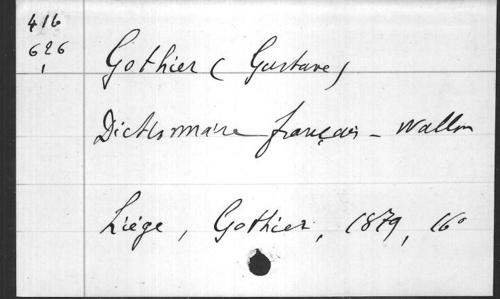 416
626
1
Gothier (Gustave)
Dictionnaire français - wallon
Liége, Gothier, 1879, 16°